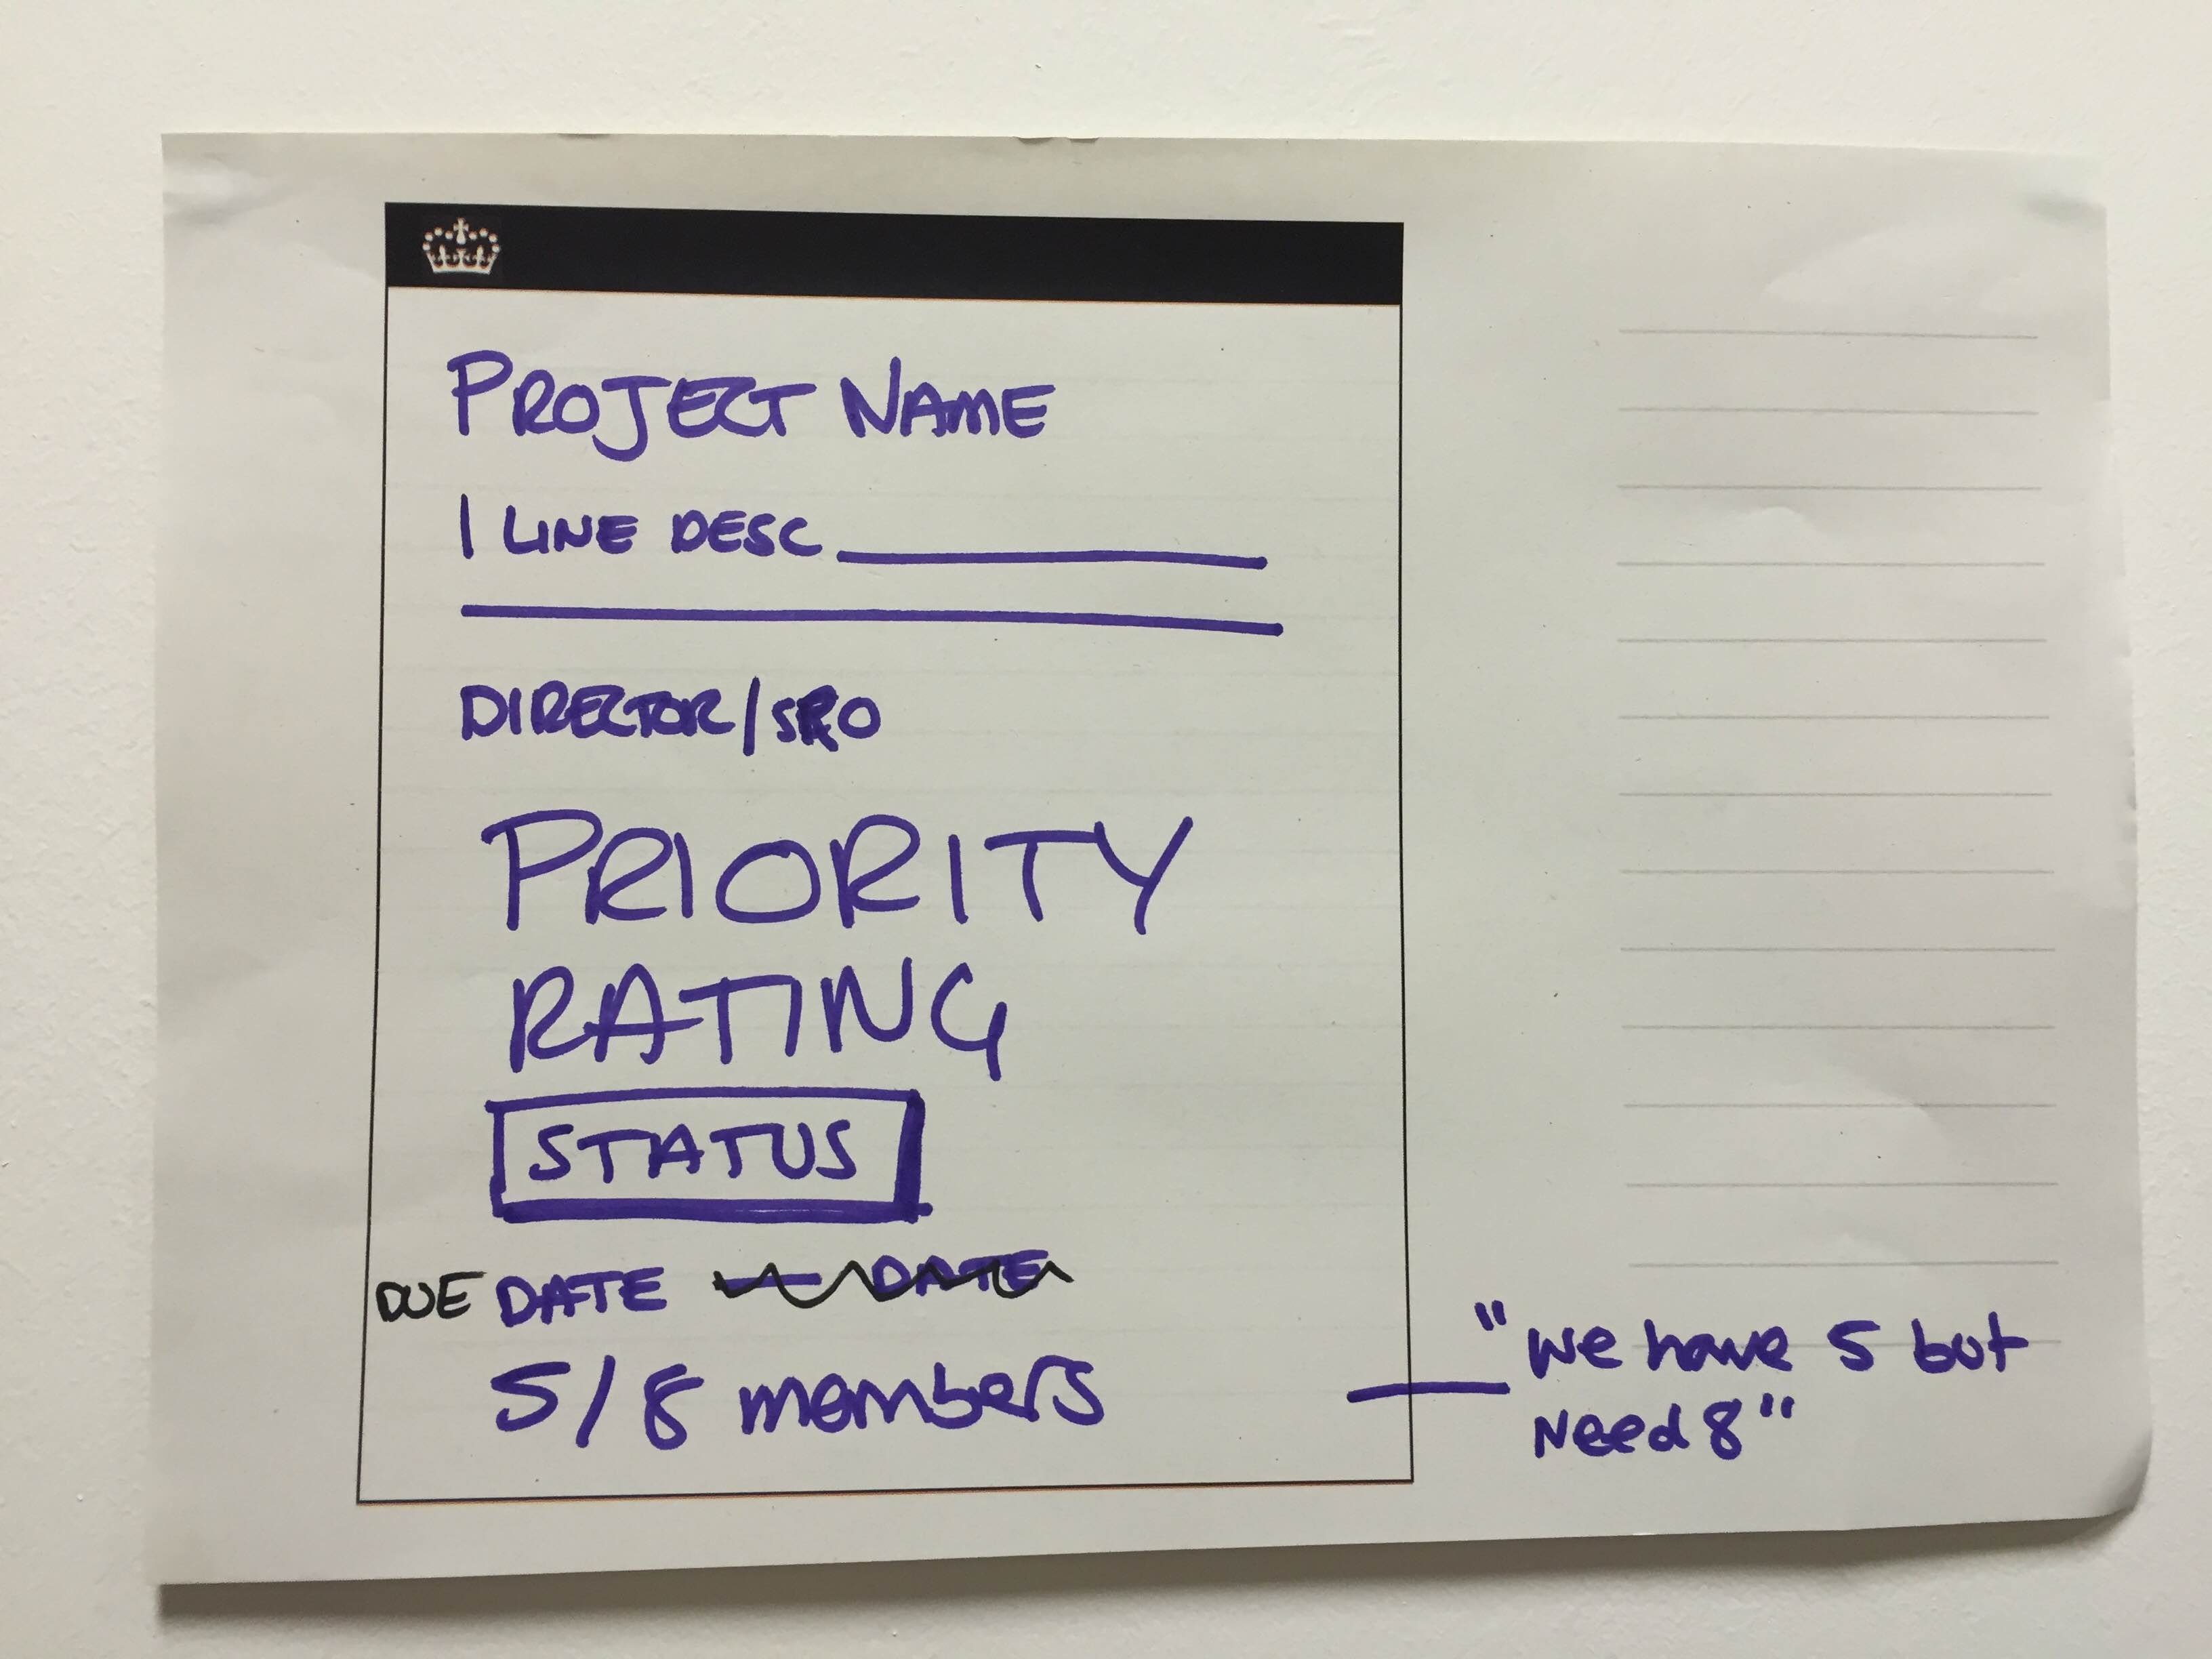 PROJECT NAME
1 LINE DESC
DIRECTOR/SRO
PRIORITY
RATING
STATUS
DUE DATE - DATE
5/8 members
"We have 5 but
Need 8"